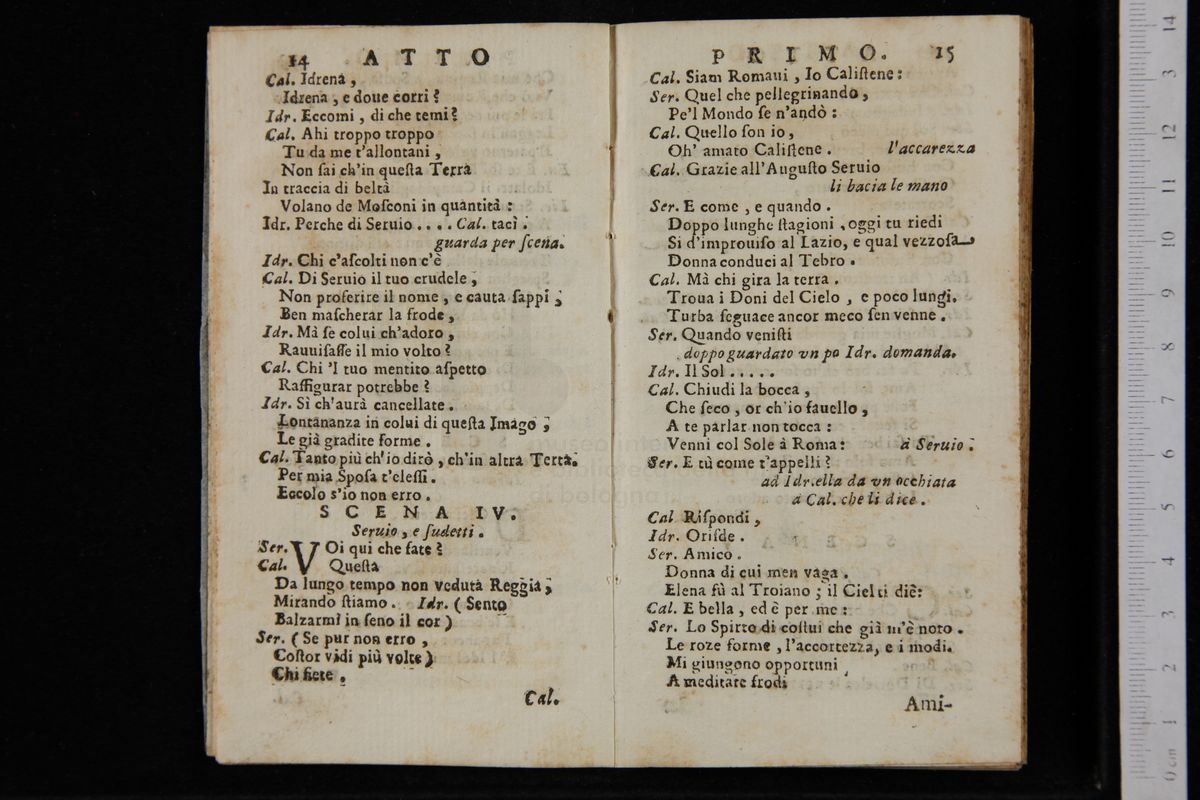 14 ATTO
Cal. Idrena,
Idrena, e doue corri?
Idr. Eccomi, di che temi?
Cal. Ahi troppo troppo
Tu da me t'allontani,
Non ſai ch'in queſta Terra
In traccia di beltà
Volano de Moſconi in quantità:
Idr. Perche di Seruio.... Cal. taci.
guarda per ſcena.
Idr. Chi c'aſcolti non c'è
Cal. Di Seruio il tuo crudele,
Non proferire il nome, e cauta ſappi,
Ben maſcherar la frode,
Idr. Mà ſe colui ch'adoro,
Rauuiſaſſe il mio volto?
Cal. Chi 'l tuo mentito aſpetto
Raffigurar potrebbe?
Idr. Sì ch'aurà cancellate.
Lontananza in colui di queſta Imago;
Le già gradite forme.
Cal. Tanto più ch'io dirò, ch'in altra Terra.
Per mia Spoſa t'eleſſi.
Eccolo s'io non erro.
SCENA IV.
Seruio, e ſudetti.
Ser. VOi qui che fate?
Cal. Queſta
Da lungo tempo non veduta Reggia;
Mirando ſtiamo. Idr. (Sento
Balzarmi in ſeno il cor)
Ser. (Se pur non erro,
Coſtor vidi più volte)
Chi ſiete.
Cal.
PRIMO. 15
Cal. Siam Romani, Io Caliſtene:
Ser. Quel che pellegrinando,
Pe'l Mondo ſe n'andò:
Cal. Quello ſon io,
Oh' amato Caliſtene. l'accarezza
Cal. Grazie all'Auguſto Seruio
li bacia le mano
Ser. E come, e quando.
Doppo lunghe ſtagioni, oggi tu riedi
Si d'improuiſo al Lazio, e qual vezzoſa
Donna conduci al Tebro.
Cal. Mà chi gira la terra.
Troua i Doni del Cielo, e poco lungi.
Turba ſeguace ancor meco ſen venne.
Ser. Quando veniſti
doppo guardato vn po Idr. domanda.
Idr. Il Sol.....
Cal. Chiudi la bocca,
Che ſeco, or ch'io fauello,
A te parlar non tocca:
Venni col Sole à Roma: à Seruio.
Ser. E tù come t'appelli?
ad Idr. ella da vn occhiata
à Cal. che li dice.
Cal Riſpondi,
Idr. Oriſde.
Ser. Amico.
Donna di cui men vaga.
Elena fù al Troiano; il Ciel ti diè:
Cal. E bella, ed è per me:
Ser. Lo Spirto di coſtui che già m'è noto.
Le roze forme, l'accortezza, e i modi.
Mi giungono opportuni
A meditare frodi
Ami-